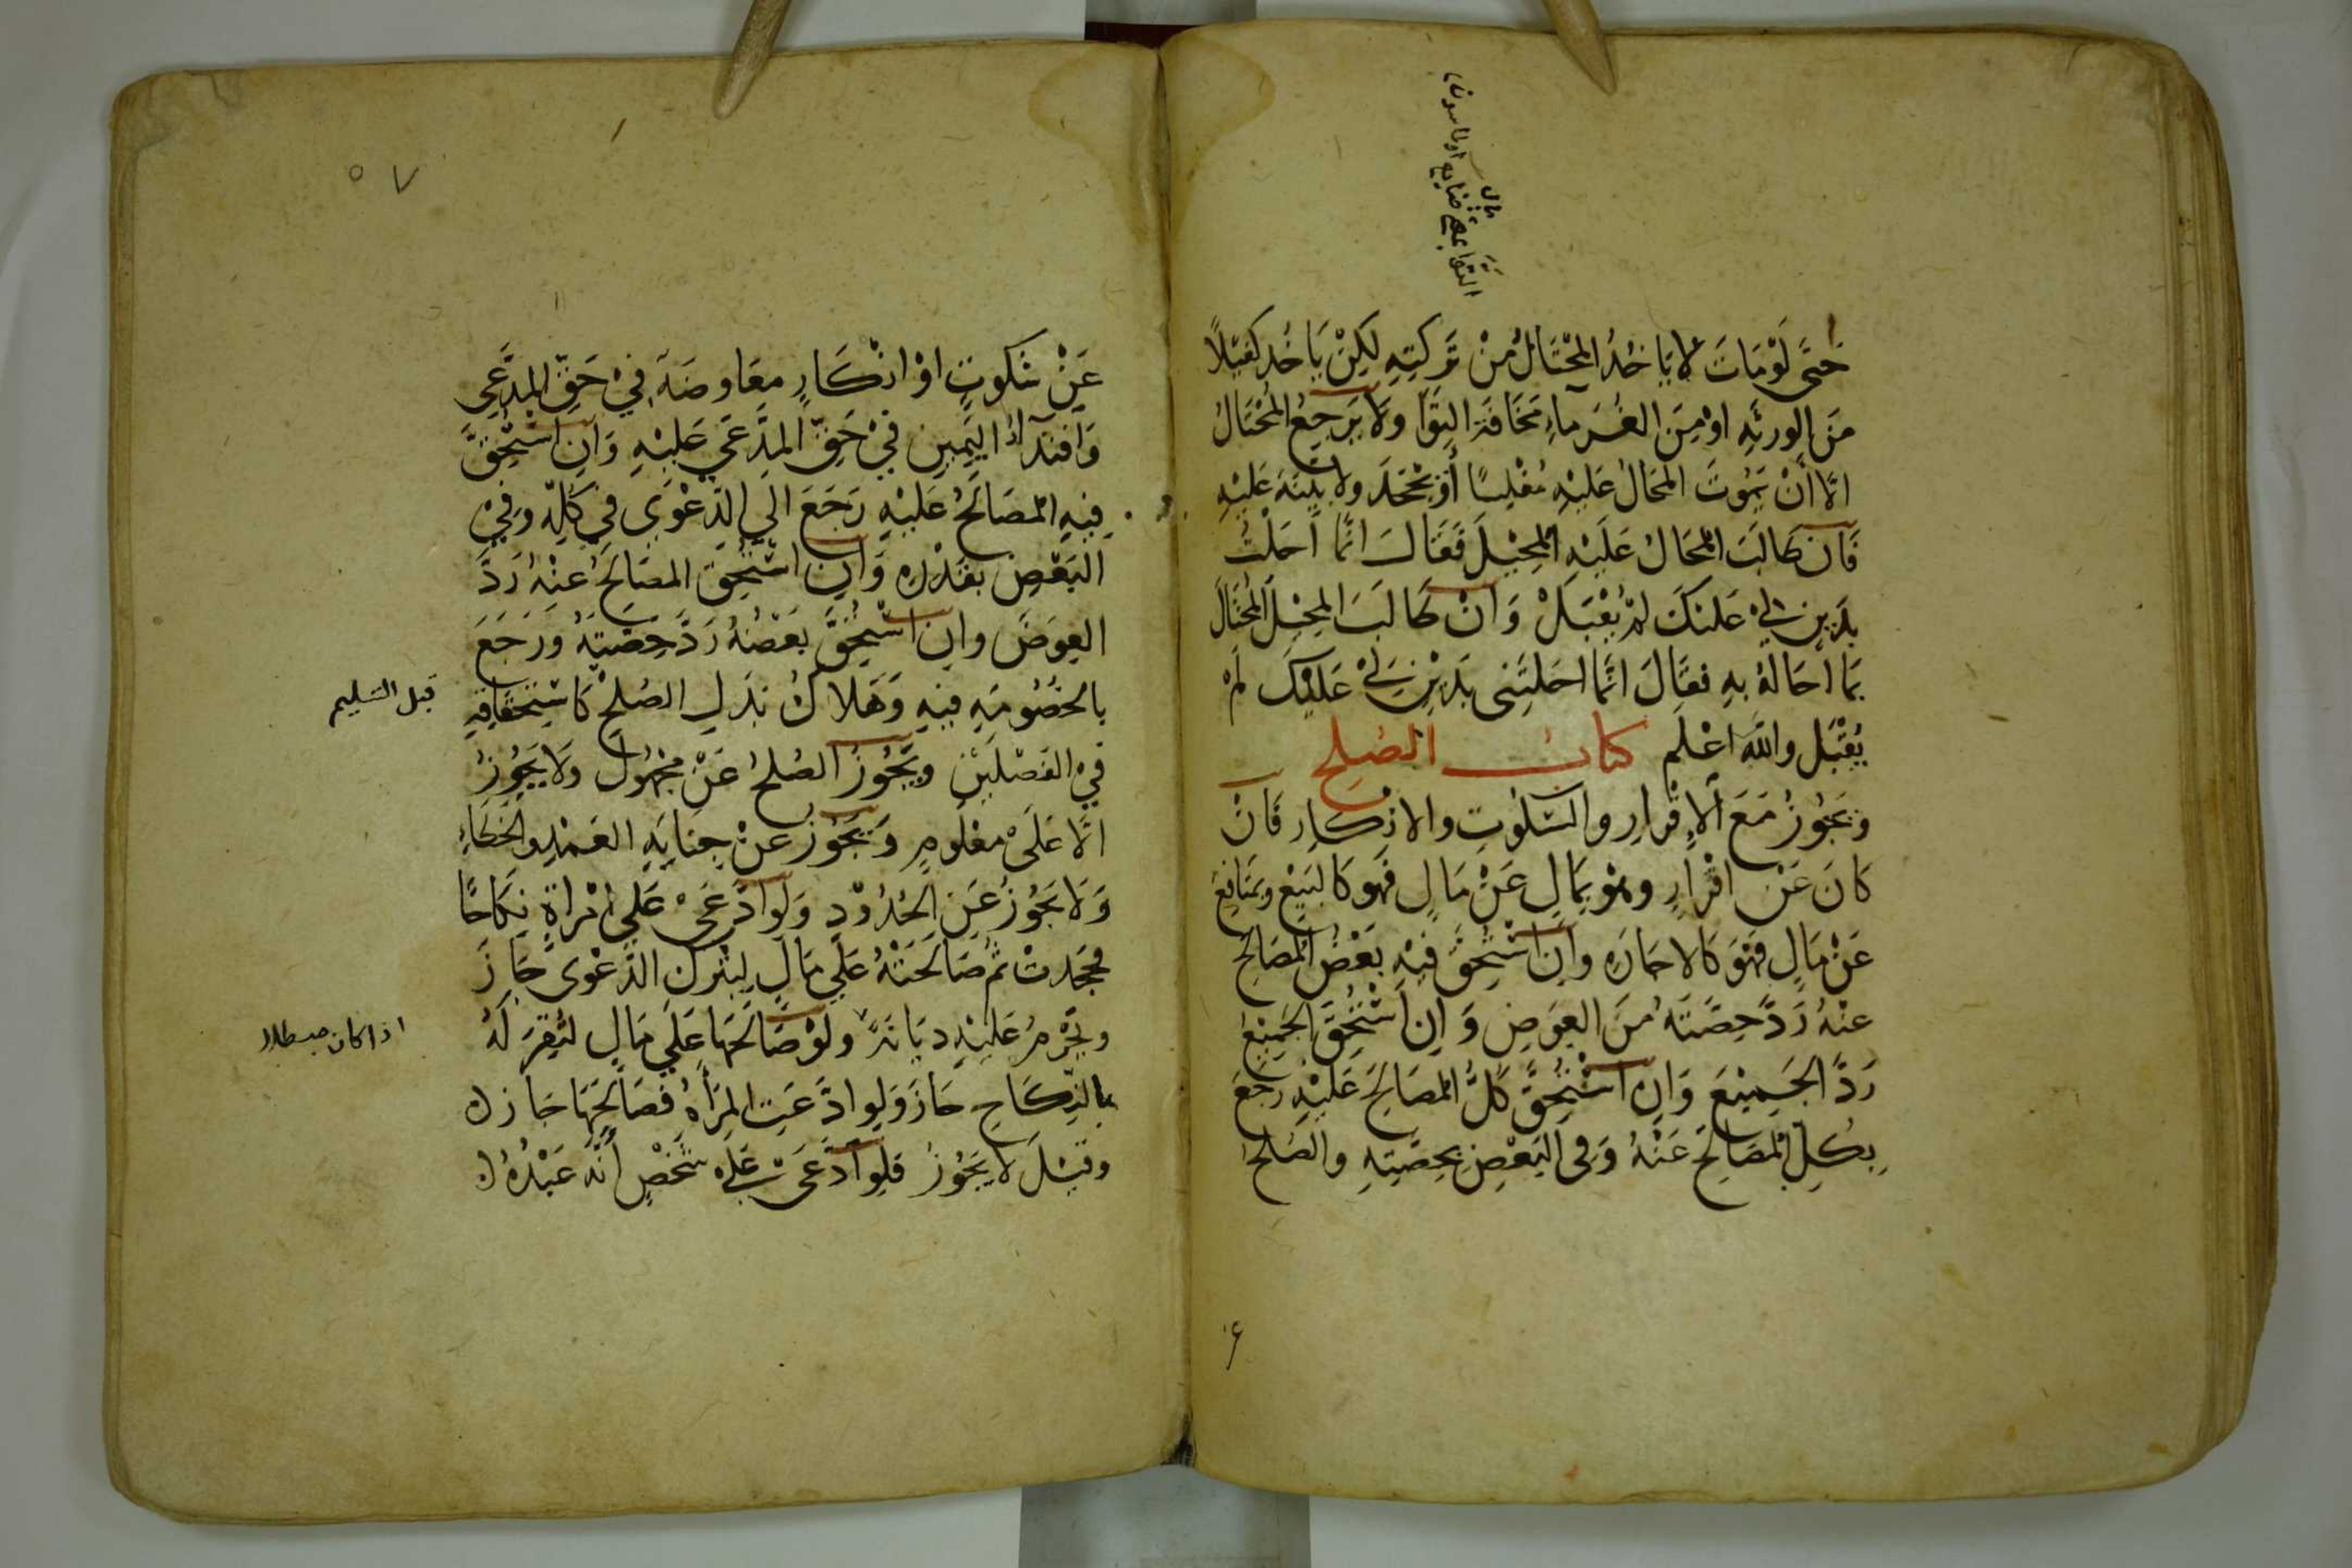 حَتَّى لَوْمَاتَ لا يَاخُذُ المُحْتَالُ مِنْ تَرِكَتِهِ لٰكِنْ يَاخُذ كَفيْلًا
مِنَ الورثَهِ اوْ مِنَ الغُرَماءِ مَخَافَةَ التَّوَا ولَا يَرجِعُ المُحْتَالُ
الَّا أَنْ يَمُوتَ المُحَالُ عَلَيْهِ مُفْلِسًا أوْ يَجْحَدَ ولا بَيّنَةَ عَلَيْهِ
فَان طَالَبَ المُحَالُ عَلَيْهِ المُحِيْلَ فَقَالَ انَّمَا اَحَلْتُ
بِدَيْنٍ لِيْ عَلَيْكَ لَمْ يُقْبَلْ وَانْ طَالَبَ المُحِيْلُ المُحْتَالَ
بِمَا أحَالَهُ بِهِ فقَالَ انَّمَا احَلتَنِى بِدَيْنٍ لِيْ عَلَيْكَ لَمْ
يُقْبَل واللّٰه اعْلم كتاب الصُلح
وَ يَجُوزُ مَعَ الاِقْرارِ والسّكُوتِ والانْكارِ فَانْ
كانَ عَنْ اقْرارٍ وهُوَ بِمَالٍ عَنْ مَالٍ فَهو كَالبَيْعِ وبمَنَافِعَ
عَنْ مَالٍ فَهْوَ كَالاجَارَهِ وان اسْتُحِقَّ فيْهِ بَعْضُ المُصَالَحِ
عنْهُ رَدَّ حِصَّتَهُ منَ العِوَضِ وَ اِن اسْتُحِقَّ الجَمِيْعُ
رَدَّ الجَمِيْعَ وَاِنِ اسْتُحِقَّ كلُّ المصَالَحِ عَلَيْهِ رَجَعَ
بِكُلِّ المُصَالَحِ عَنْهُ وَفى البَعْضِ بِحِصَّتِهِ والصُلحُ
٥٧
عَنْ سُكوتٍ اوْ انْكَارٍ معَاوضَهٌ فِيْ حَقِّ المدَّعِي
وَافتِدَاءُ اليَمِينِ فيْ حَقِّ المدَّعَي عَلَيْهِ وَان اسْتُحِقَّ
فِيهِ المُصَالَحُ عَلَيْهِ رَجَعَ الَي الدَّعْوَي في كلِّهِ وفِيْ
البَعْضِ بقَدْرِهِ وَان اسْتُحِقَّ المصَالَحُ عنْهُ رَدَّ
العِوَضَ وان اسْتُحِقَّ بَعْضُهُ رَدَّ حِصَّتَهُ ورَجَعَ
بالخُصُومَهِ فيهِ وَهَلاكُ بَدَلِ الصُلحِ كَاسْتِحْقَاقِهِ
قبل التسليم
فيْ الفَصْلَيْنِ ويَجُوزُ الصُلحُ عَنْ مَجْهُولٍ ولَا يَجُوزُ
الَّا عَلَى معْلُومٍ وَيَجُوزُ عَنْ جِنَايَهِ العَمْدِ والخَطَاءِ
وَلَا يَجُوزُ عَنِ الحُدُوْدِ وَلَو ادَّعَى عَلَي امْرَاةٍ نِكَاحًا
فجَحَدتْ ثُم صَالَحَتْهُ عَلَي مَالٍ لِيَتْرك الدَّعْوى جَازَ
ويَحْرمُ عَلَيْهِ دِيَانَةً ولَوْ صَالَحَهَا عَلَي مَالٍ لتُقِرَّ لَهُ
اذا كان مبطلا
بالنِّكَاحِ جَازَ وَلَوِ ادَّعَتِ المرْأهُ فصَالَحَهَا جَازَ
وقيْلَ لَا يَجُوْزُ فَلِو ادَّعَى عَلَى شَخْصٍ أنَّهُ عَبْدُهُ